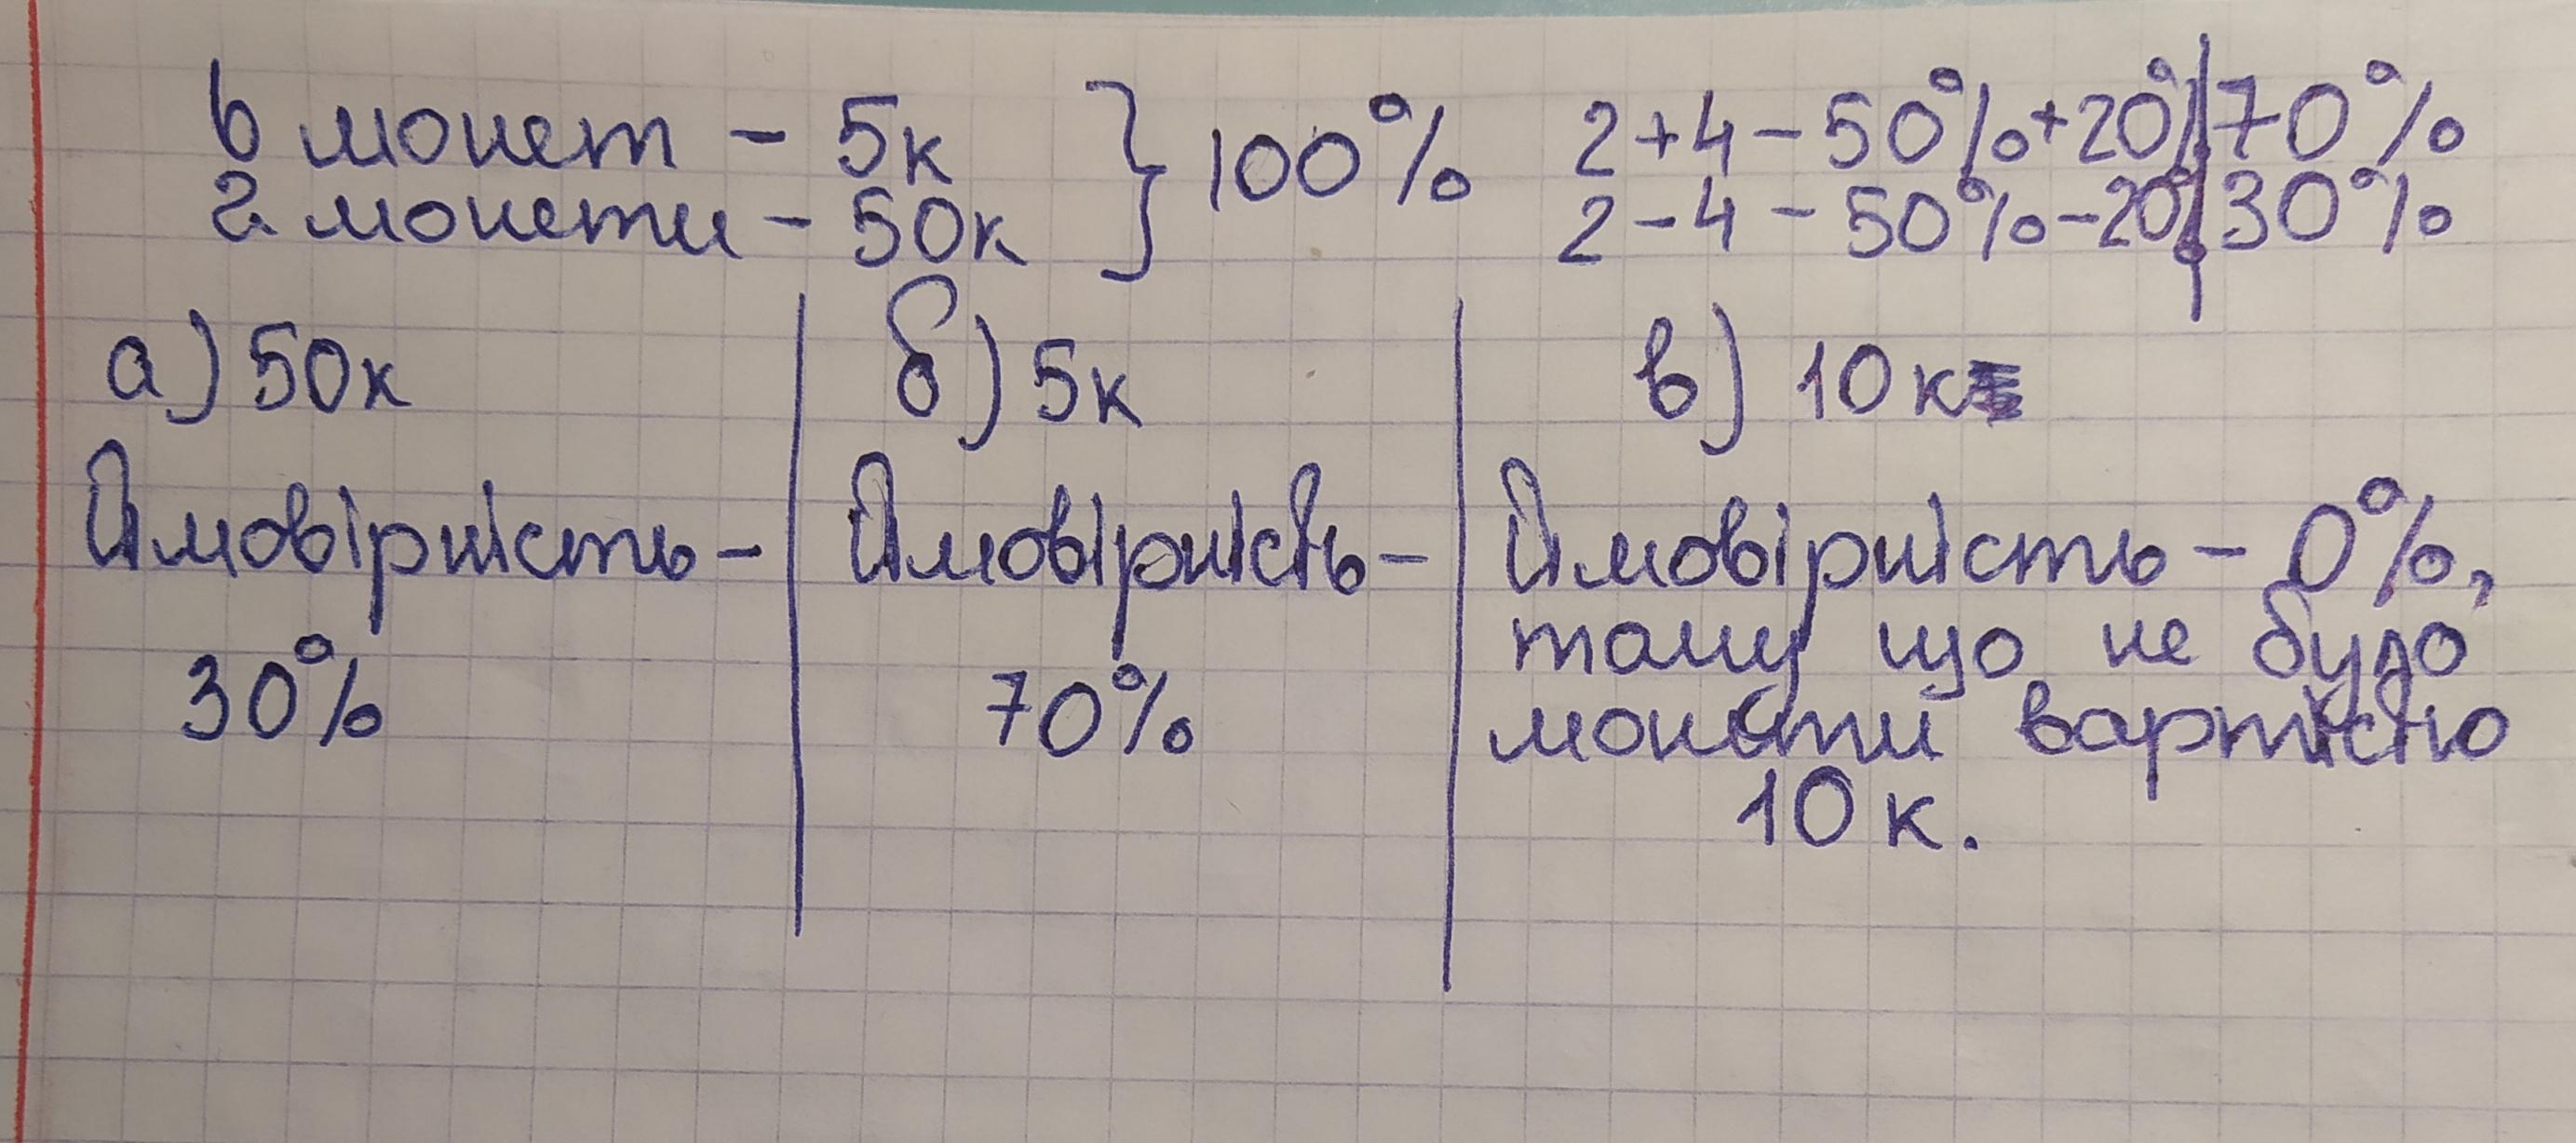 6 монет - 5к } 100%
2 монети - 50к
2+4-50%+20%|70%
2-4-50%-20%|30%
а) 50к
Ймовірність -
30%
б) 5к
Ймовірність -
70%
в) 10к
Ймовірність - 0%,
тому що не було
монети вартістю
10 к.